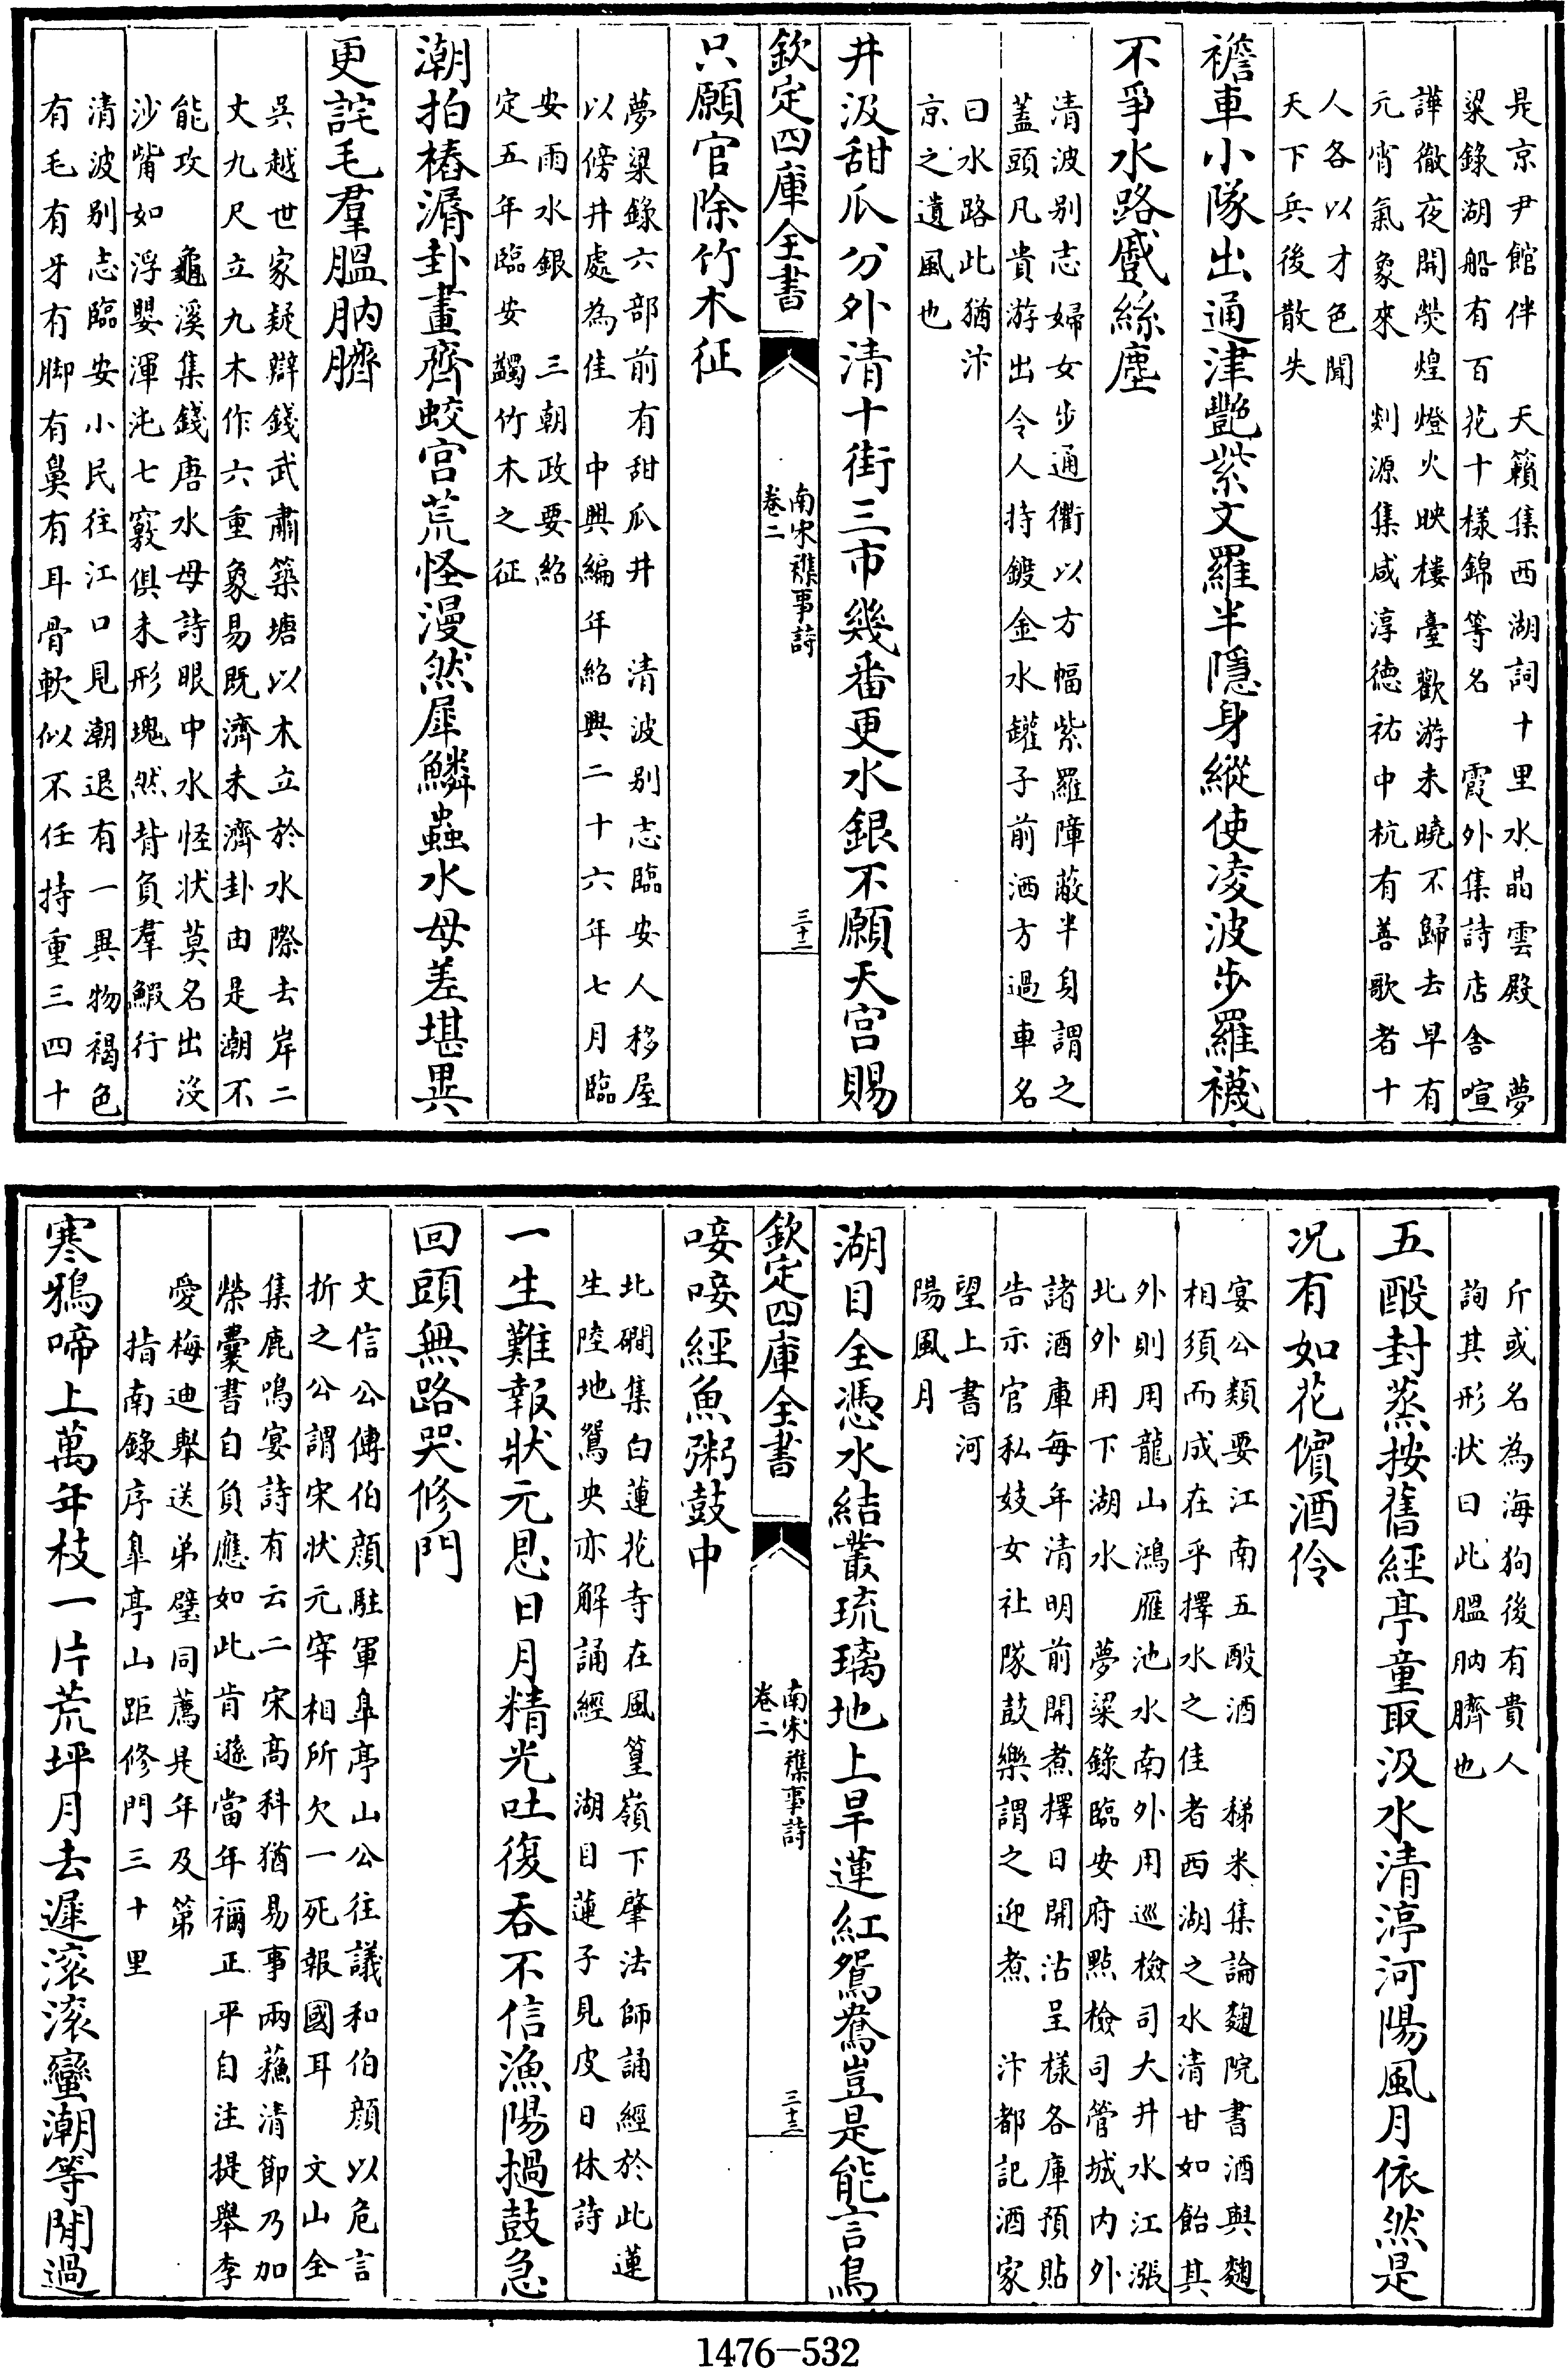 是京尹館伴　天籟集西湖詞十里水晶雲殿　夢
粱錄湖船有百花十様錦等名　霞外集詩店舍喧
譁徹夜開熒煌燈火映樓臺歡游未曉不歸去早有
元宵氣象來　剡源集咸淳德祐中杭有善歌者十
人各以才色聞
天下兵後散失
襜車小隊出通津艷紫文羅半隱身縱使凌波步羅襪
不爭水路蹙絲塵
清波别志婦女步通衢以方幅紫羅障蔽半身謂之
蓋頭凡貴游出令人持鍍金水罐子前洒方過車名
曰水路此猶汴
京之遺風也
井汲甜瓜分外清十街三市幾番更水銀不願天宫賜
欽定四庫全書
南宋襍事詩
卷二
三十二
只願官除竹木征
夢粱錄六部前有甜瓜井　清波别志臨安人移屋
以傍井處為佳　中興編年紹興二十六年七月臨
安雨水銀　三朝政要紹
定五年臨安蠲竹木之征
潮拍樁漘卦畫齊蛟宫荒怪漫然犀鱗蟲水母差堪異
更詫毛羣膃肭臍
吳越世家疑辯錢武肅築塘以木立於水際去岸二
丈九尺立九木作六重象易既濟未濟卦由是潮不
能攻　龜溪集錢唐水母詩眼中水怪状莫名出沒
沙觜如浮嬰渾沌七竅俱未形塊然背負羣鰕行
清波别志臨安小民往江口見潮退有一異物褐色
有毛有牙有脚有鼻有耳骨軟似不任持重三四十
斤或名為海狗後有貴人
詢其形状曰此膃肭臍也
五酘封蒸按舊經亭童取汲水清渟河陽風月依然是
况有如花儐酒伶
宴公類要江南五酘酒　稊米集論麯院書酒與麯
相須而成在乎擇水之佳者西湖之水清甘如飴其
外則用龍山鴻雁池水南外用巡檢司大井水江漲
北外用下湖水　夢粱錄臨安府點檢司管城内外
諸酒庫每年清明前開煮擇日開沽呈様各庫預貼
告示官私妓女社隊鼓樂謂之迎煮　汴都記酒家
望上書河
陽風月
湖目全憑水結叢琉璃地上旱蓮紅鴛鴦豈是能言鳥
欽定四庫全書
南宋襍事詩
卷二
三十三
唼唼經魚粥鼓中
北磵集白蓮花寺在風篁嶺下肇法師誦經於此蓮
生陸地鴛央亦解誦經　湖目蓮子見皮日休詩
一生難報狀元恩日月精光吐復吞不信漁陽撾鼓急
回頭無路哭修門
文信公傳伯顔駐軍臯亭山公往議和伯顔以危言
折之公謂宋状元宰相所欠一死報國耳　文山全
集鹿鳴宴詩有云二宋高科猶易事兩蘓清節乃加
榮囊書自負應如此肯遜當年禰正平自注提舉李
愛梅迪舉送弟璧同薦是年及第
指南錄序臯亭山距修門三十里
寒鴉啼上萬年枝一片荒坪月去遲滚滚蠻潮等閒過
1476—532